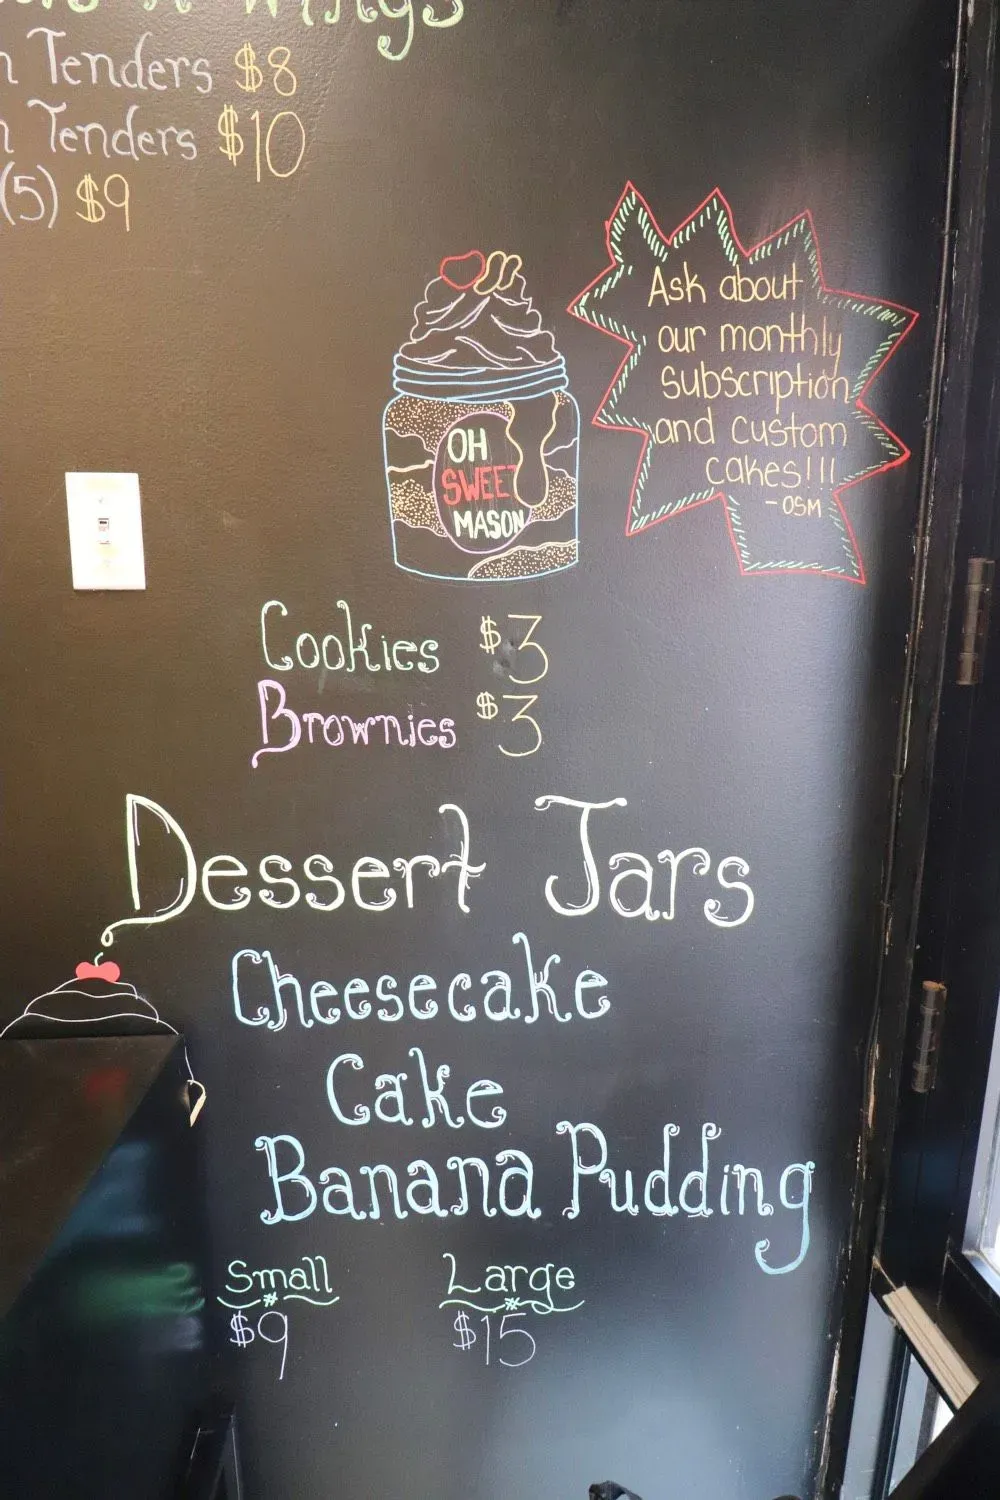 Wings
Tenders $8
Tenders $10
(5) $9
Ask about
our monthly
subscription
and custom
cakes!!!
-OSM
OH
SWEET
MASON
Cookies $3
Brownies $3
Dessert Jars
Cheesecake
Cake
Banana Pudding
Small Large
$9 $15